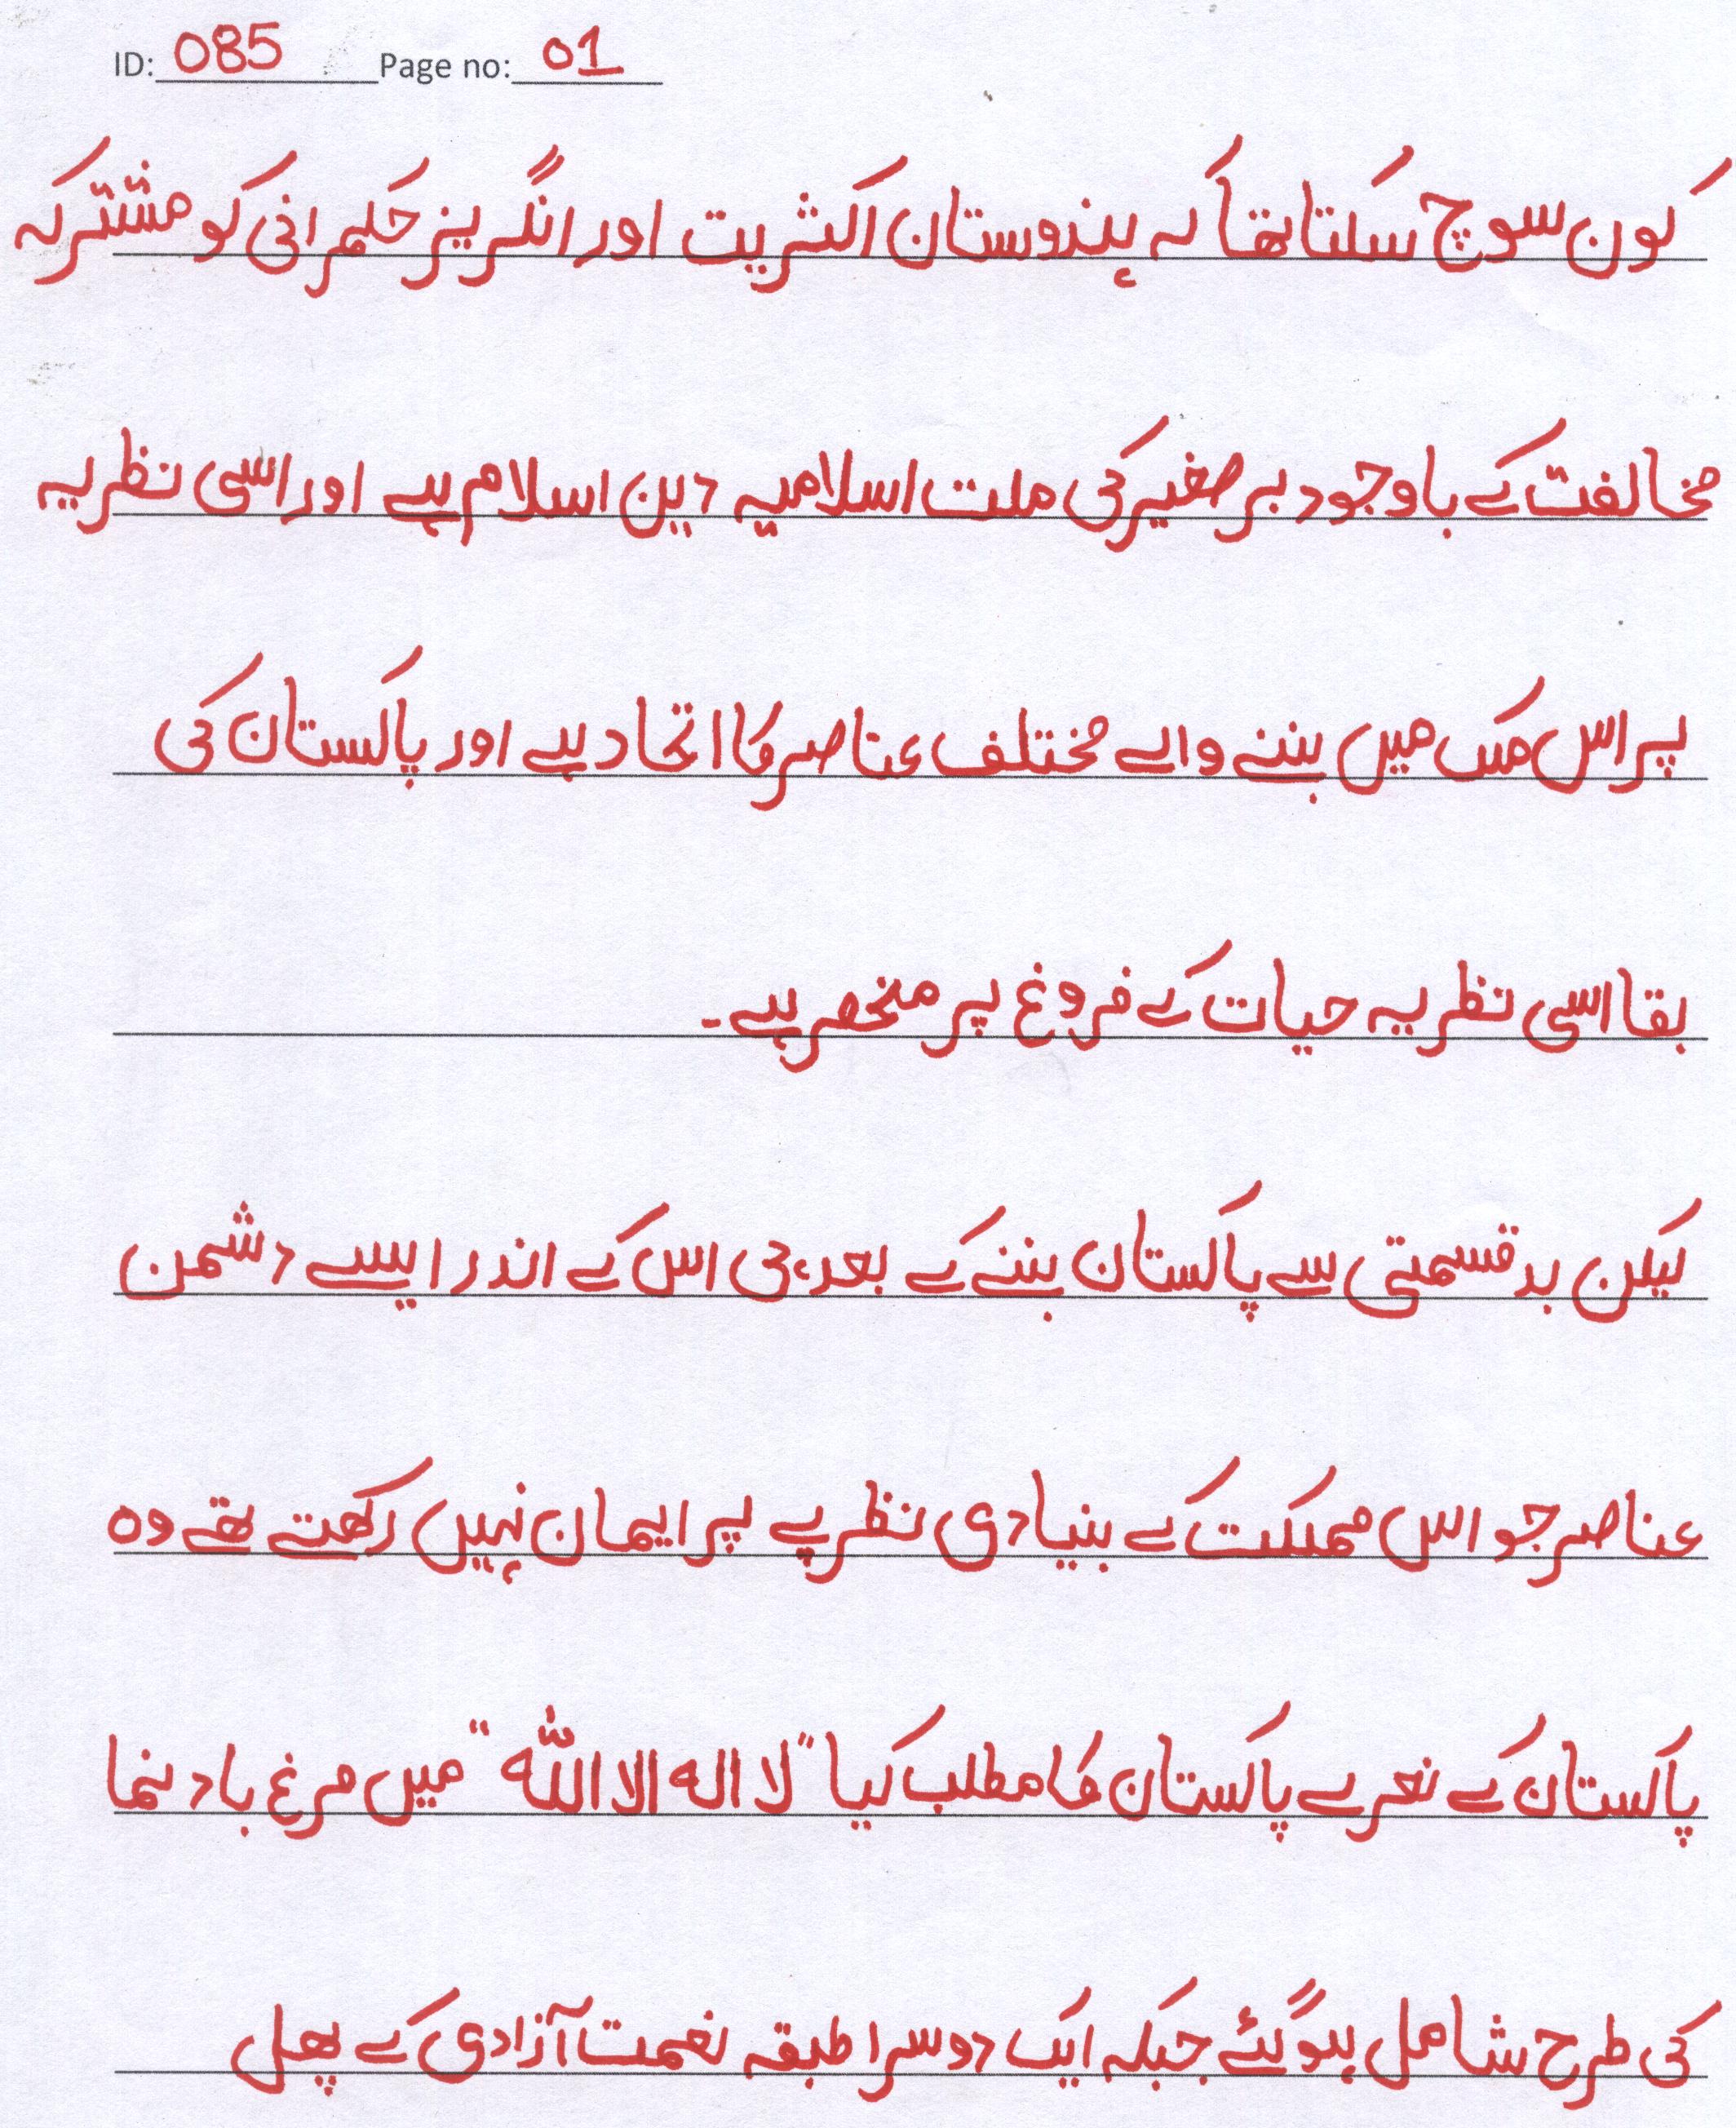 ID: 085 Page no: 01
کون سوچ سکتا تھا کہ ہندوستان اکثریت اور انگریز حکمرانی کو مشترکہ
مخالفت کے باوجود برصغیر کی ملت اسلامیہ دین اسلام ہے اور اسی نظریہ
پر اس ملک میں بننے والے مختلف عناصر کا اتحاد ہے اور پاکستان کی
بقا اسی نظریہ حیات کے فروغ پر منحصر ہے۔
لیکن بدقسمتی سے پاکستان بننے کے بعد ہی اس کے اندر ایسے دشمن
عناصر جو اس مملکت کے بنیادی نظریے پر ایمان نہیں رکھتے تھے وہ
پاکستان کے نعرے پاکستان کا مطلب کیا "لا الہ الا اللہ" میں مرغ بادنما
کی طرح شامل ہوگئے جبکہ ایک دوسرا طبقہ نعمت آزادی کے پھل